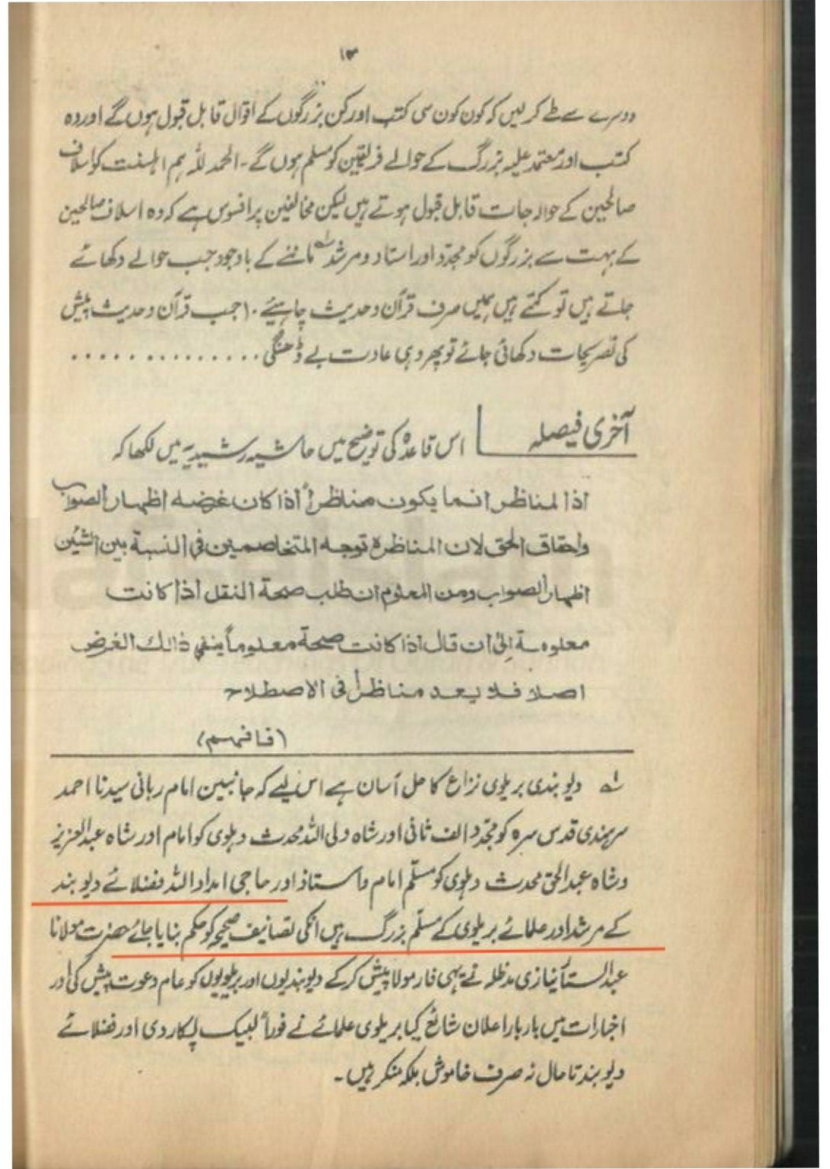 ۱۳
دوسرے سے طے کر لیں کہ کون کون سی کتب اور کن بزرگوں کے اقوال قابل قبول ہوں گے اور وہ
کتب اور معتمد علیہ بزرگ کے حوالے فریقین کو مسلم ہوں گے۔ الحمد للہ ہم اہلسنت کو اسلاف
صالحین کے حوالہ جات قابل قبول ہوتے ہیں لیکن مخالفین پر افسوس ہے کہ وہ اسلاف صالحین
کے بہت سے بزرگوں کو مجدد اور استاد و مرشد ماننے کے باوجود جب حوالے دکھائے
جاتے ہیں تو کہتے ہیں ہمیں صرف قرآن و حدیث چاہیئے۔ جب قرآن و حدیث پیش
کی تصریحات دکھائی جائے تو پھر وہی عادت بے ڈھنگی ..............
آخری فیصلہ اس قاعدہ کی توضیح میں حاشیہ رشیدیہ میں لکھا کہ
اذا لمناظر انما یکون مناظراً اذا کان غرضہ اظہار الصواب
ولحقاق الحق لان المناظرۃ توجہ المتخاصمین فی النسبۃ بین الشیئن
اظہار الصواب ومن المعلوم ان طلب صحۃ النقل اذا کانت
معلومۃ الی ان قال اذا کانت صحۃ معلوماً ینفی ذالک الغرض
اصلا فلا یعد مناظراً فی الاصطلاح
(فافہم)
لہ دیوبندی بریلوی نزاع کا حل آسان ہے اس لیے کہ جانبین امام ربانی سیدنا احمد
سرہندی قدس سرہ کو مجدد الف ثانی اور شاہ ولی اللہ محدث دہلوی کو امام اور شاہ عبدالعزیز
و شاہ عبدالحق محدث دہلوی کو مسلّم امام و استاذ اور حاجی امداد اللہ فضلائے دیوبند
کے مرشد اور علمائے بریلوی کے مسلّم بزرگ ہیں انکی تصانیف صحیحہ کو حکم بنایا جائے حضرت مولانا
عبدالستار نیازی مدظلہ نے یہی فارمولا پیش کر کے دیوبندیوں اور بریلویوں کو عام دعوت پیش کی اور
اخبارات میں بار بار اعلان شائع کیا بریلوی علمائے نے فوراً لبیک پکار دی اور فضلائے
دیوبند تا حال نہ صرف خاموش بلکہ منکر ہیں۔